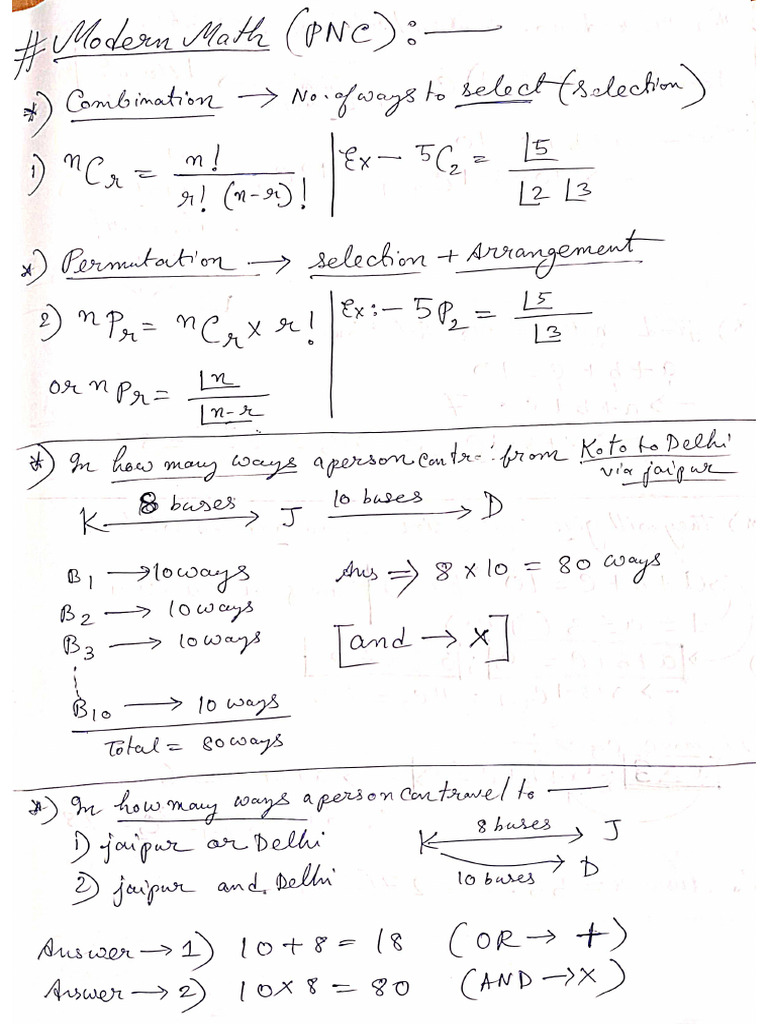 # Modern Math (PNC):—
*) Combination → No. of ways to select (selection)
1) nCr = n! / r! (n-r)! | Ex — 5C2 = ⌊5 / ⌊2 ⌊3
*) Permutation → selection + Arrangement
2) nPr = nCr × r! | Ex:- 5P2 = ⌊5 / ⌊3
or nPr = ⌊n / ⌊n-r
*) In how many ways a person can tr- from Koto to Delhi
via jaipur
K 8 buses → J 10 buses → D
B1 → 10 ways Ans ⇒ 8 × 10 = 80 ways
B2 → 10 ways
B3 → 10 ways [and → ×]
B10 → 10 ways
Total = 80 ways
*) In how many ways a person can travel to —
1) jaipur or Delhi K 8 buses → J
2) jaipur and Delhi 10 buses → D
Answer → 1) 10 + 8 = 18 (OR → +)
Answer → 2) 10 × 8 = 80 (AND → ×)